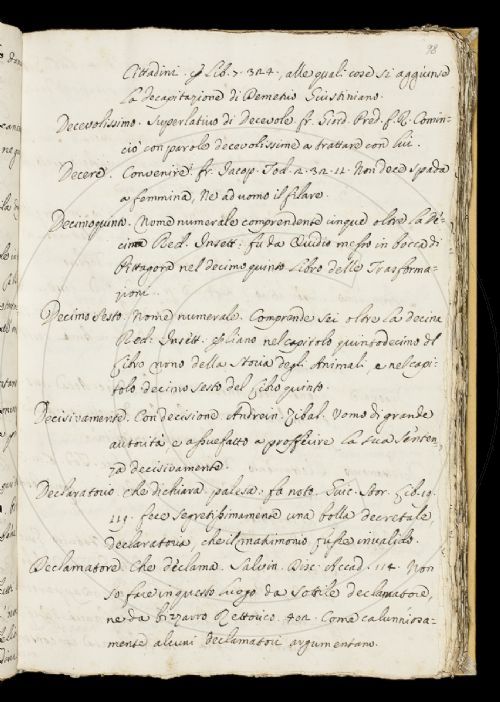 98
Cittadini. p Lib. 7. 324, alle quali cose si aggiunse
la decapitazione di Demetrio Giustiniano.
Decevolissimo. Superlativo di Decevole. fr. Giord. Pred. f. R. Comin-
ciò con parole decevolissime a trattare con lui.
Decere. Convenire. fr. Jacop. Tod. 2. 32. 11. Non dece spada
a femmina, Ne ad uomo il filare.
Decimoquinto. Nome numerale comprendente cinque oltre la De-
cina Red. Insett: fu da Ovidio messo in bocca di
Pittagora nel decimoquinto Libro delle Trasforma-
zioni.
Decimo sesto. Nome numerale. Comprende sei oltre la decina
Red. Insett. Pliano nel capitolo quintodecimo del
Libro nono della Storia degli Animali e nel capi-
tolo decimo sesto del Libro quinto.
Decisivamente. Con decisione Andrein. Zibal. Uomo di grande
autorità e assuefatto a profferire la sua senten-
za decisivamente.
Declaratorio che dichiara palesa: fa noto. Guic. Stor. Lib. 19.
119. fece segretissimamente una bolla decretale
declaratoria, che il matrimonio fusse invalido.
Declamatore. Che declama. Salvin. Disc. Accad. 114. Non
so fare in questo luogo da Sottile declamatore,
ne da bizzarro Rettorico. 402. Come calunniosa-
mente alcuni declamatori argumentano.